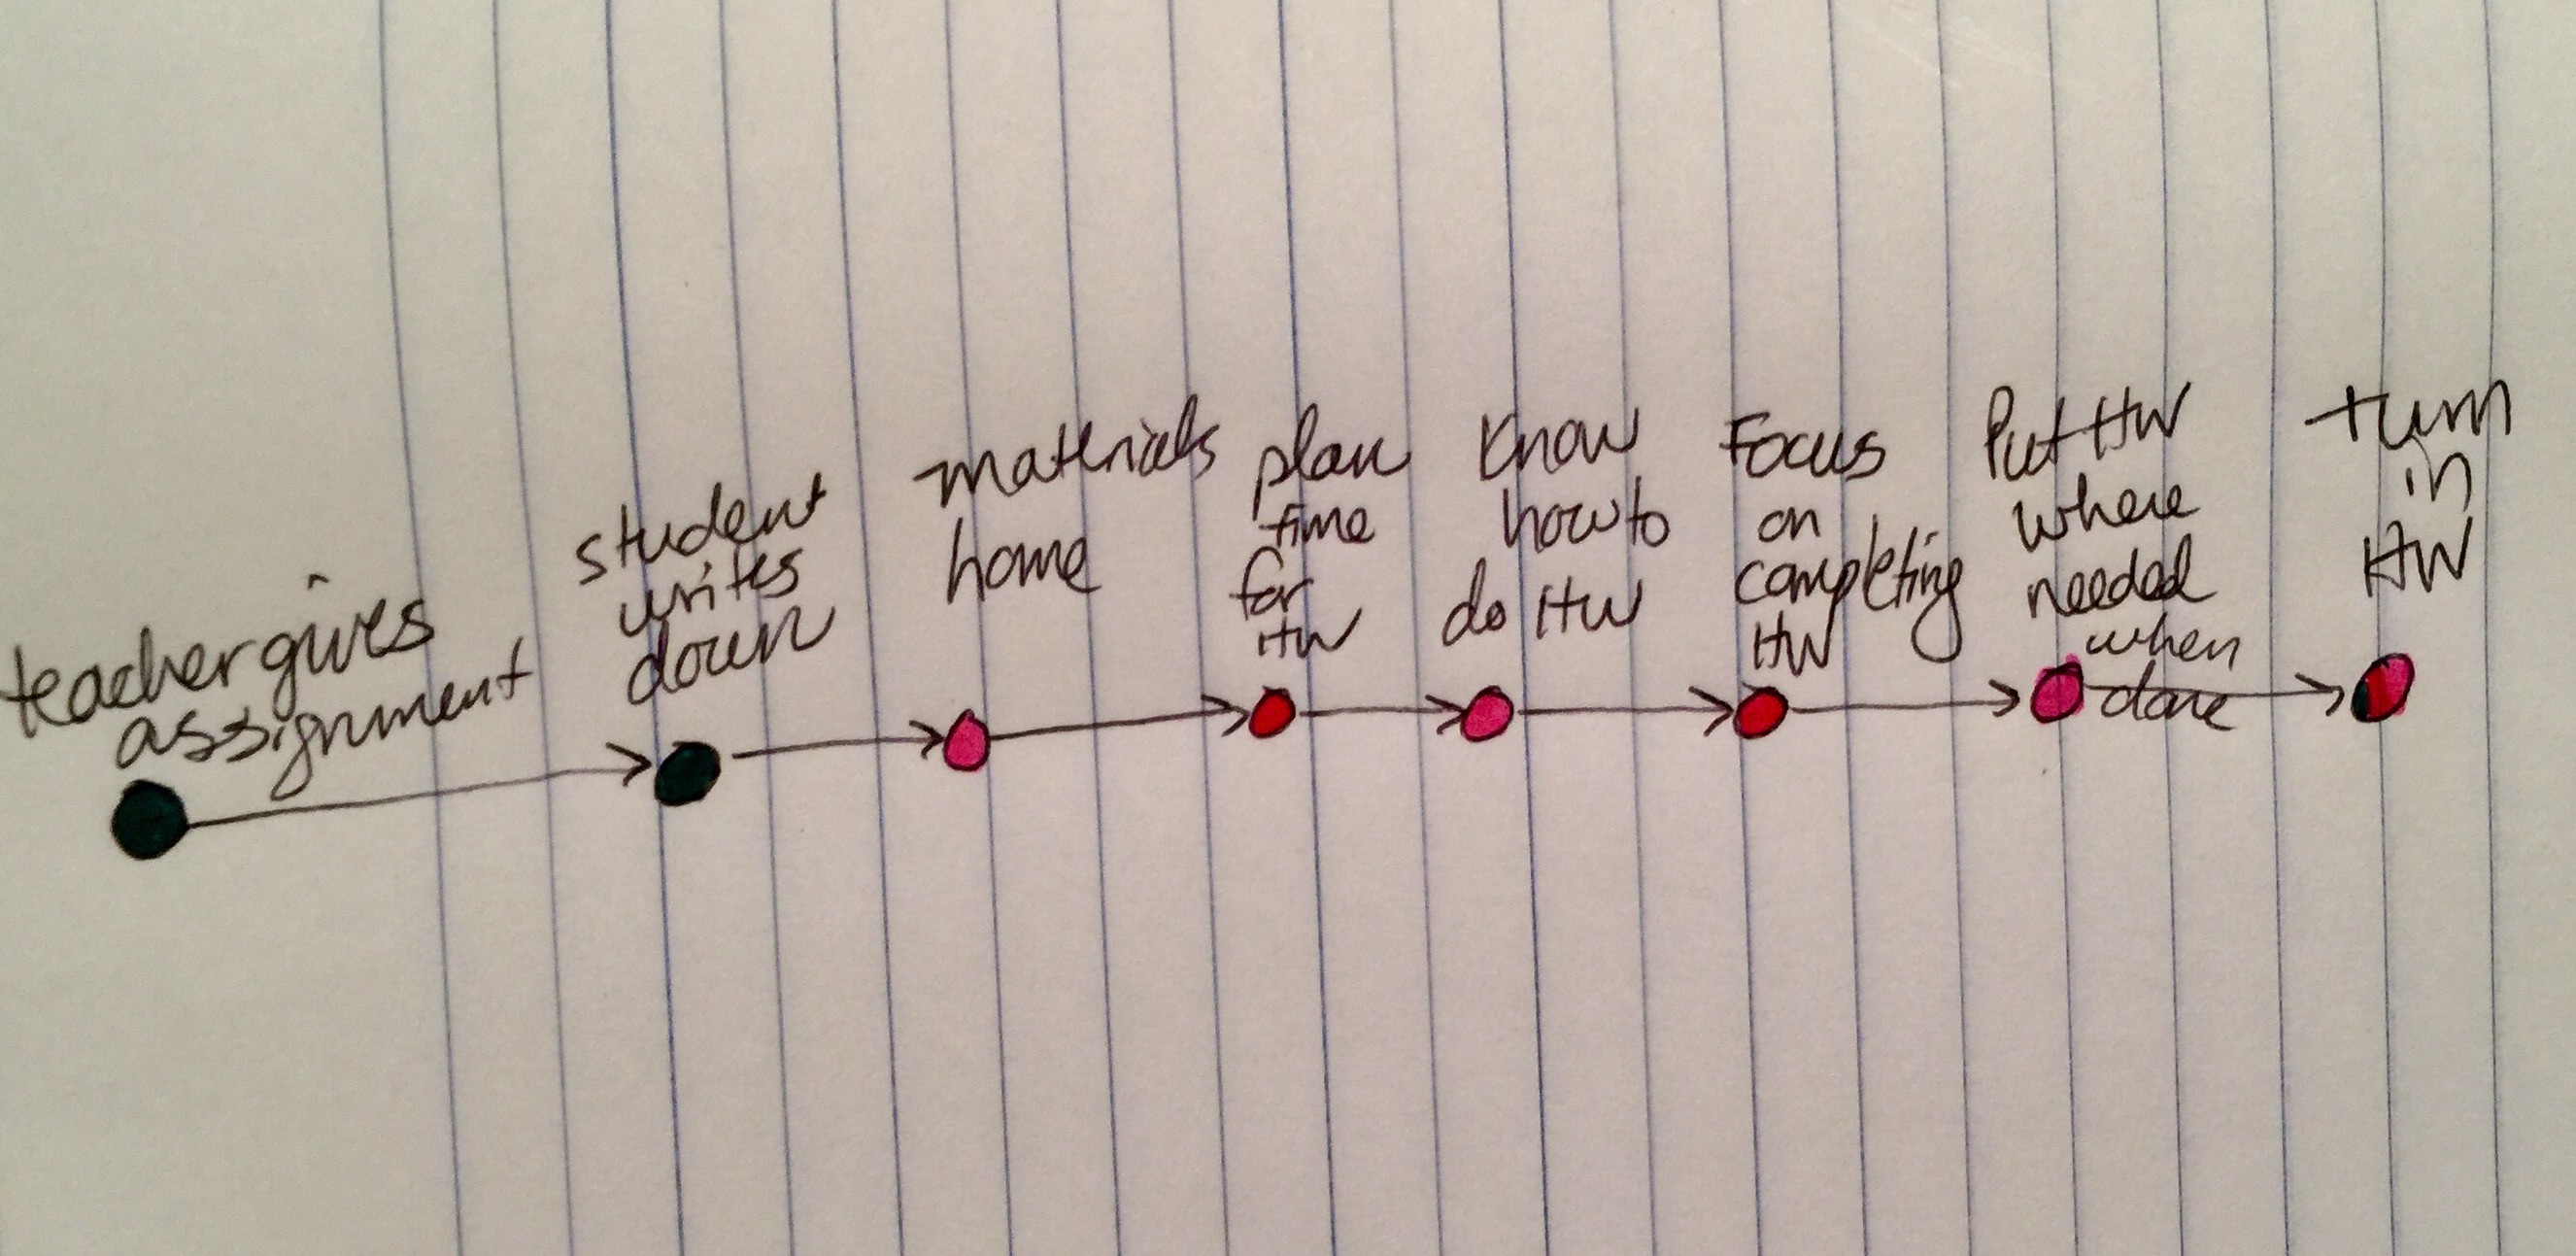 teacher gives
assignment
student
writes
down
materials
home
plan
time
for
HW
Know
how to
do HW
Focus
on
completing
HW
Put HW
where
needed
when
done
turn
in
HW